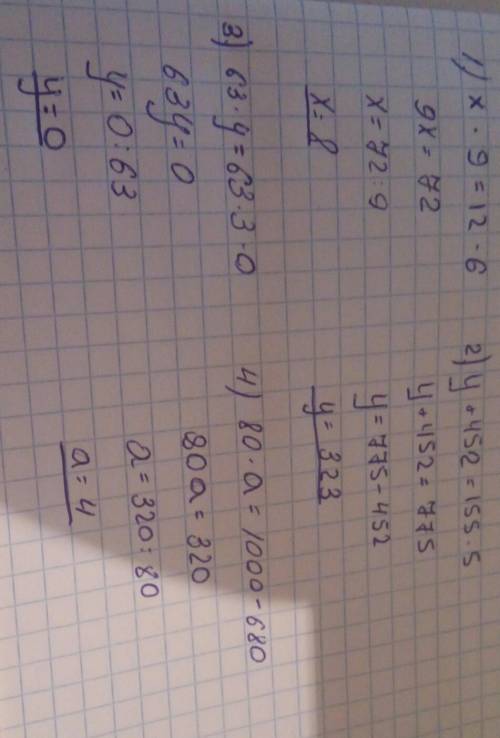 1) x · 9 = 12 · 6
9x = 72
x = 72 : 9
x = 8
2) y + 452 = 155 · 5
y + 452 = 775
y = 775 - 452
y = 323
3) 63 · y = 63 · 3 · 0
63y = 0
y = 0 : 63
y = 0
4) 80 · a = 1000 - 680
80a = 320
a = 320 : 80
a = 4